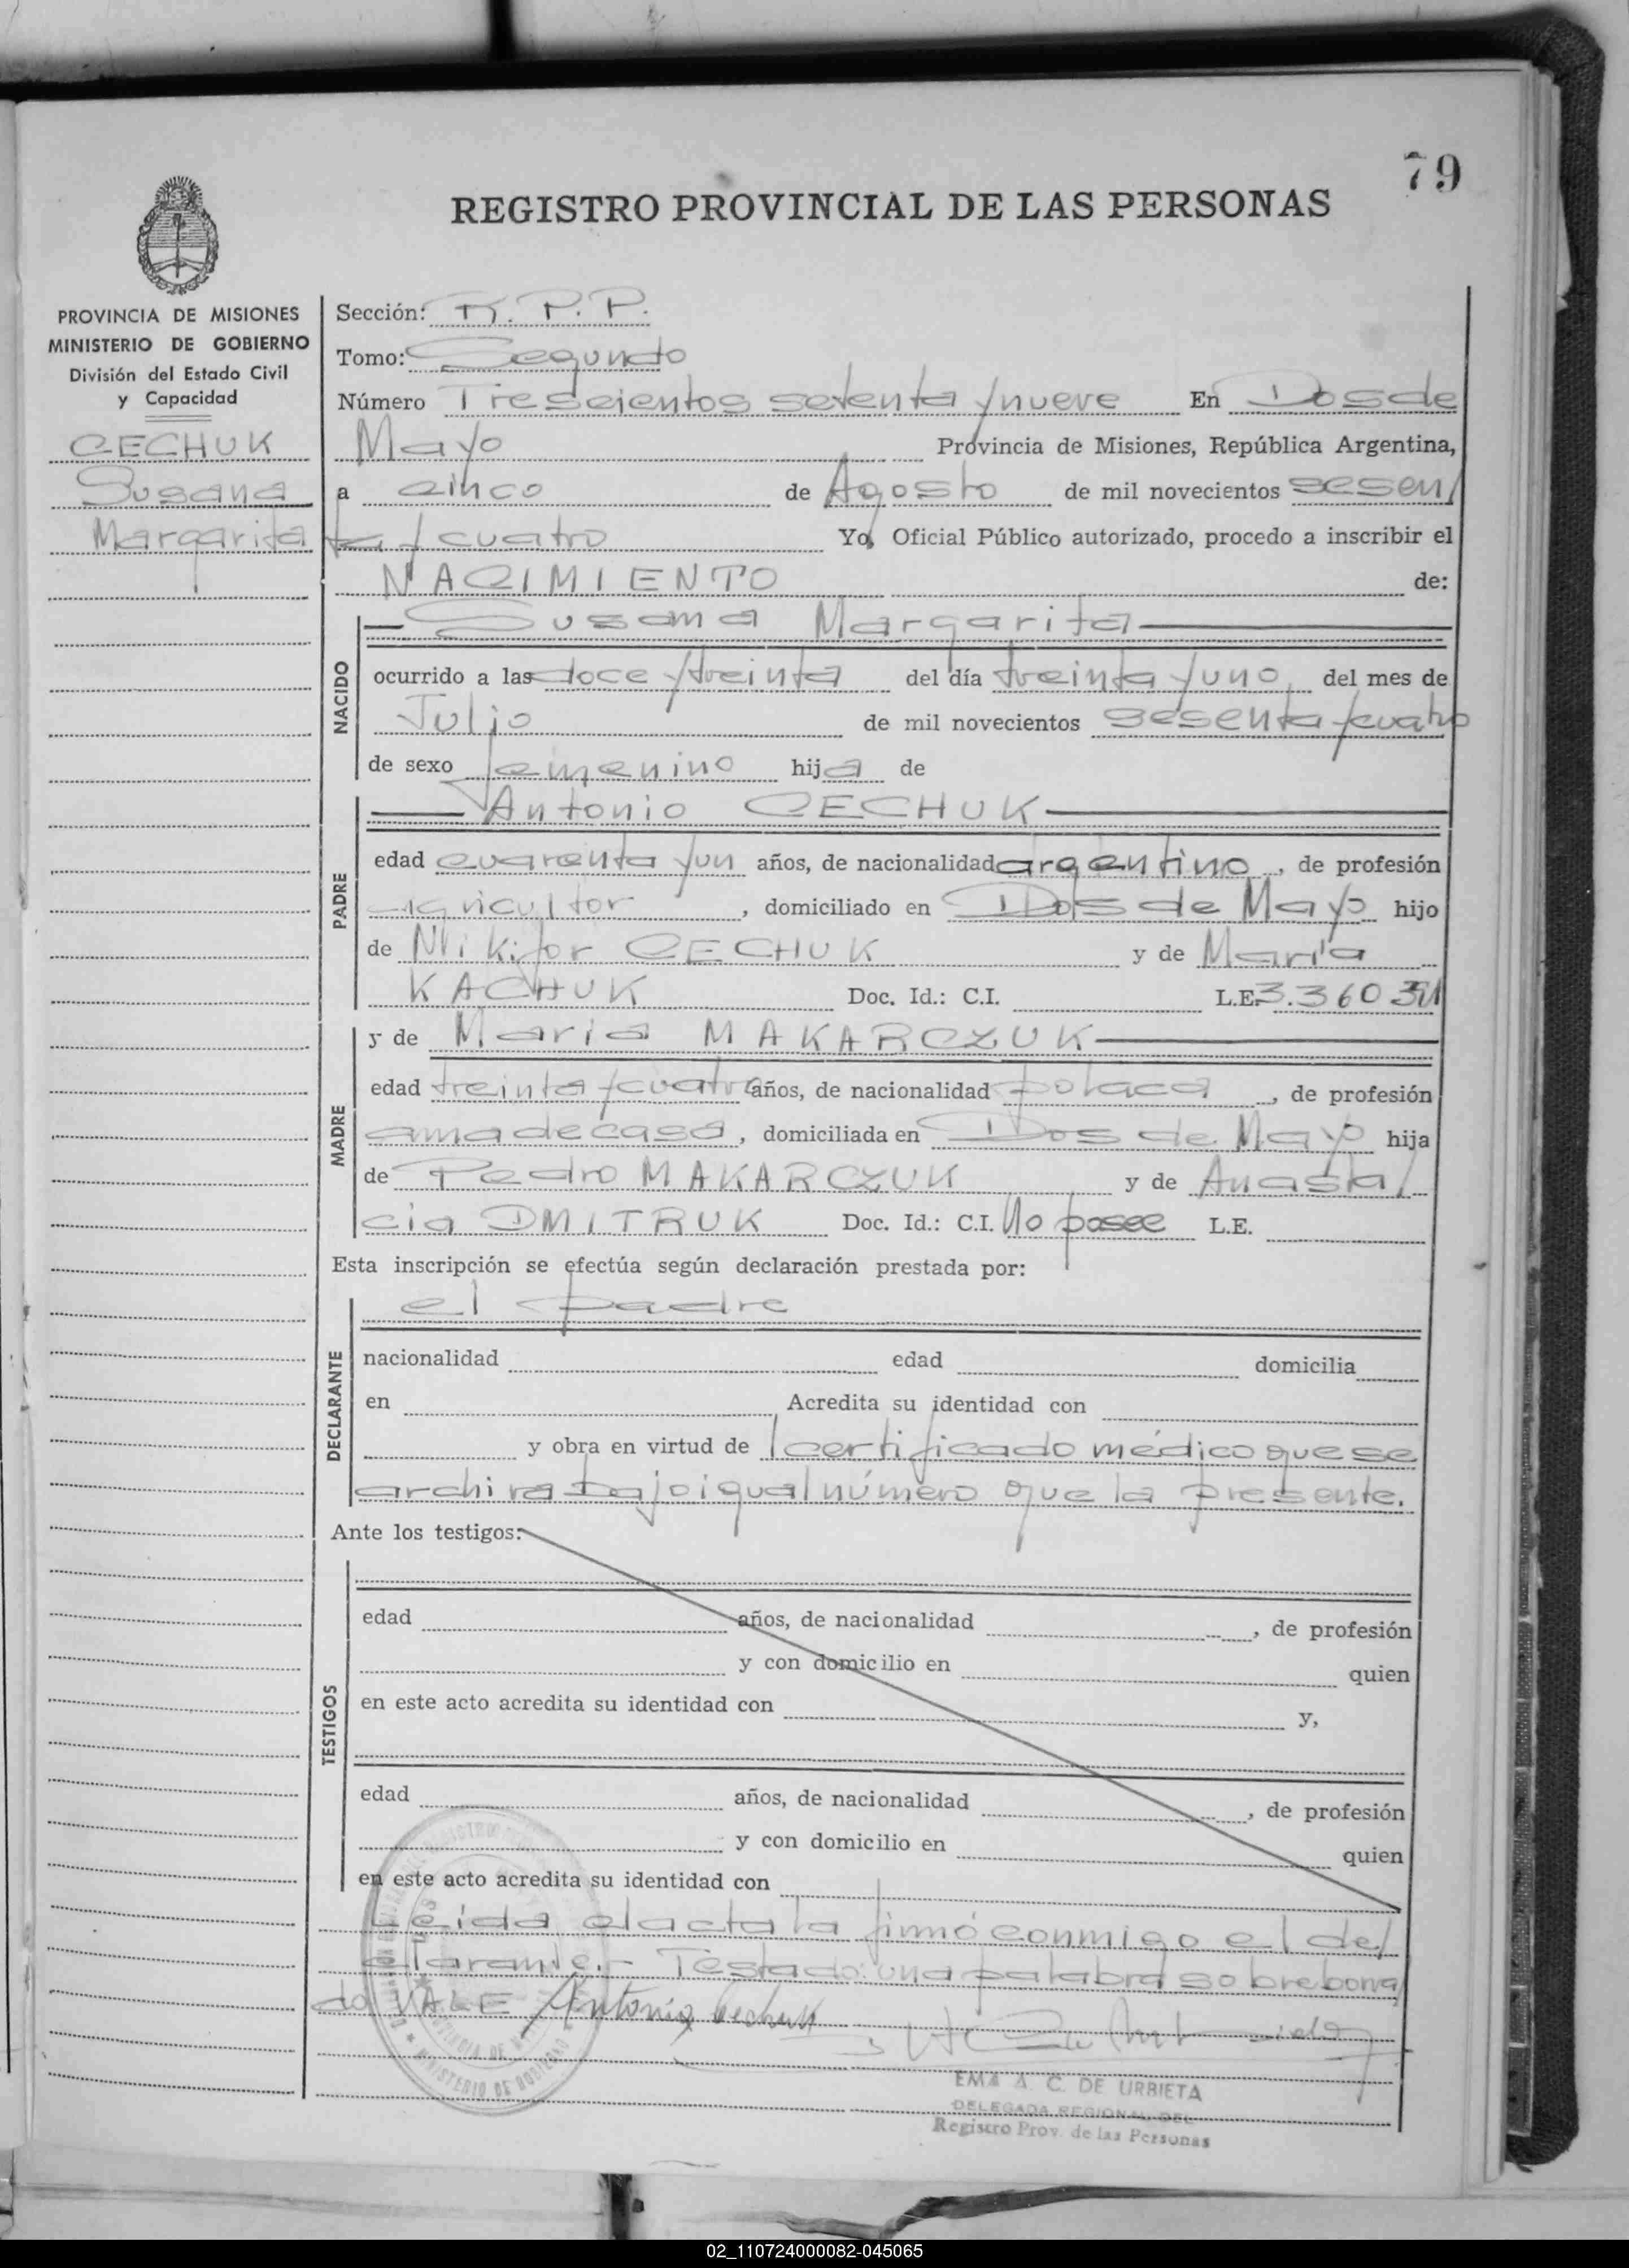 79
REGISTRO PROVINCIAL DE LAS PERSONAS
PROVINCIA DE MISIONES
MINISTERIO DE GOBIERNO
División del Estado Civil
y Capacidad
CECHUK
Susana
Margarita
Sección: R. P. P.
Tomo: Segundo
Número Trescientos setenta y nueve En Dos de
Mayo Provincia de Misiones, República Argentina,
a cinco de Agosto de mil novecientos sesen/
ta y cuatro Yo, Oficial Público autorizado, procedo a inscribir el
NACIMIENTO de:
NACIDO
Susana Margarita
ocurrido a las doce y treinta del día treinta y uno del mes de
Julio de mil novecientos sesenta y cuatro
de sexo femenino hija de
PADRE
Antonio CECHUK
edad cuarenta y un años, de nacionalidad argentino, de profesión
agricultor, domiciliado en Dos de Mayo hijo
de Nikifor CECHUK y de María
KACHUK Doc. Id.: C.I. L.E.
MADRE
y de María MAKARCZUK
edad treinta y cuatro años, de nacionalidad polaca, de profesión
ama de casa, domiciliada en Dos de Mayo hija
de Pedro MAKARCZUK y de Anasta/
cia DMITRUK Doc. Id.: C.I. No posee L.E.
Esta inscripción se efectúa según declaración prestada por:
DECLARANTE
el padre
nacionalidad edad domicilia
en Acredita su identidad con
y obra en virtud de l certificado médico que se
archiva bajo igual número que la presente.
Ante los testigos:
TESTIGOS
edad años, de nacionalidad, de profesión
y con domicilio en quien
en este acto acredita su identidad con y,
edad años, de nacionalidad, de profesión
y con domicilio en quien
en este acto acredita su identidad con
Leida el acta la firmó conmigo el de/
clarante.- Testado: una palabra sobreborra/
do VALE Antonio Cechuk
EMA A. C. DE URBIETA
DELEGADA REGIONAL DEL
Registro Prov. de las Personas
02_110724000082-045065